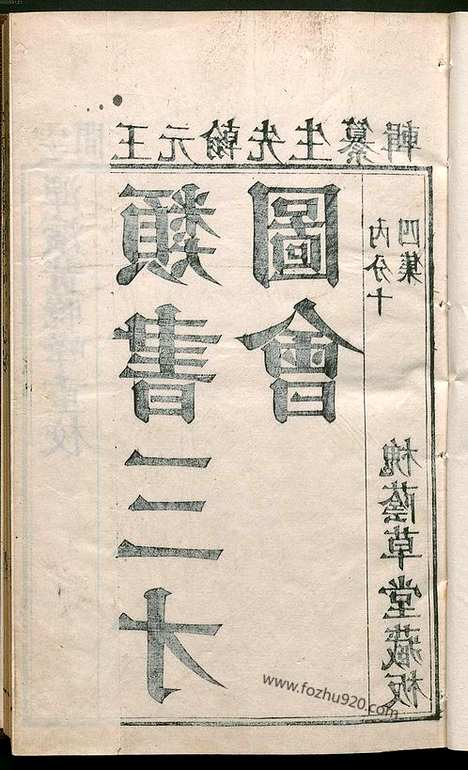 王元翰先生纂輯
類書三才
圖會
內分十
四集
槐蔭草堂藏板
www.fozhu920.com